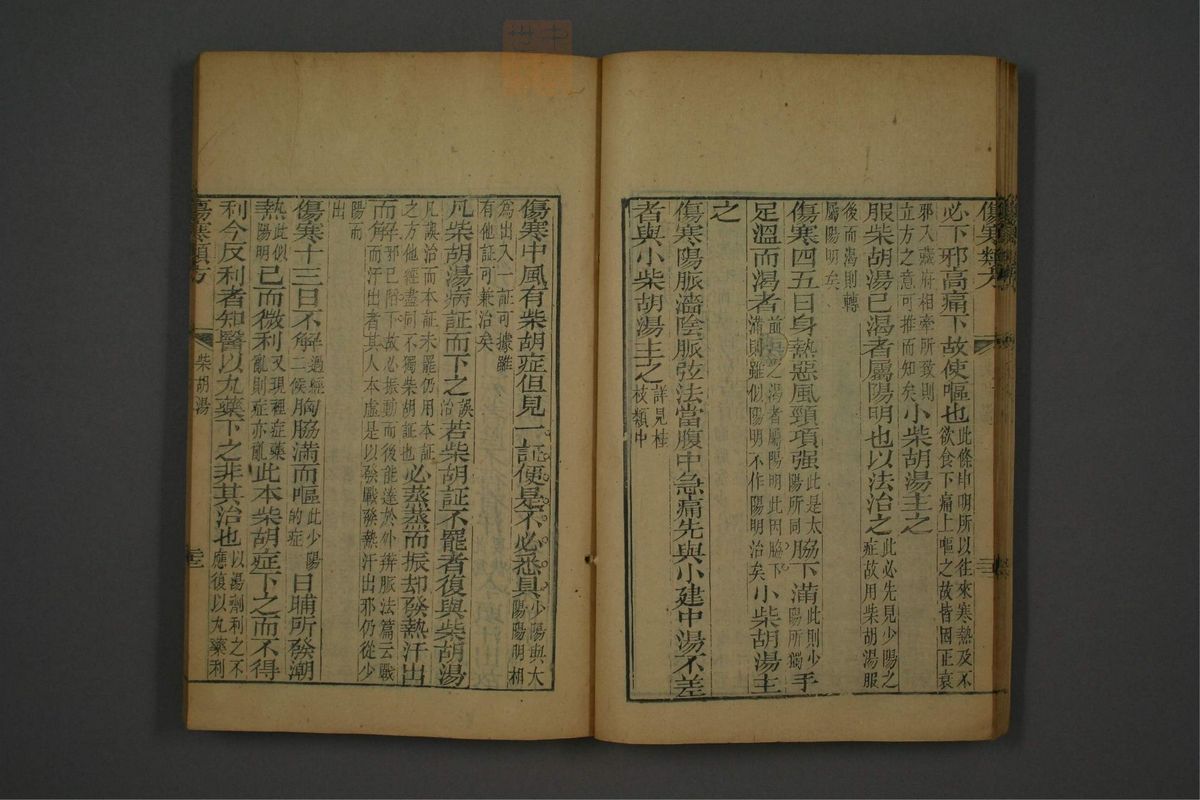 傷寒類方
必下邪高痛下故使嘔也此條申明所以往來寒熱及不欲食下痛上嘔之故皆因正衰
邪入臟腑相牽所致則立方之意可推而知矣小柴胡湯主之
服柴胡湯已渴者屬陽明也以法治之此必先見少陽之症故用柴胡湯服
後而渴則轉屬陽明矣
傷寒四五日身熱惡風頸項强此是太陽所同脇下滿此則少陽所獨手
足溫而渴者前㕮之湯者屬陽明此因脇下滿則雖似陽明不作陽明治矣小柴胡湯主
之
傷寒陽脈濇陰脈弦法當腹中急痛先與小建中湯不差
者與小柴胡湯主之詳見桂枝類中
傷寒中風有柴胡症但見一証便是不必悉具少陽與太陽陽明相
為出入一証可據雖有他証可兼治矣
凡柴胡湯病証而下之誤治若柴胡証不罷者復與柴胡湯
凡誤治而本証未罷仍用本証之方他經盡同不獨柴胡証也必蒸蒸而振却發熱汗出
而解邪已陷下故必振動而後能達於外辨脈法篇云戰而汗出者其人本虛是以發戰發熱汗出邪仍從少
陽而出
傷寒十三日不解過經二候胸脇滿而嘔此少陽的症日晡所發潮
熱此似陽明已而微利又現裡症藥亂則症亦亂此本柴胡症下之而不得
利今反利者知醫以丸藥下之非其治也以湯劑利之不應復以丸藥利
傷寒類方
柴胡湯
三